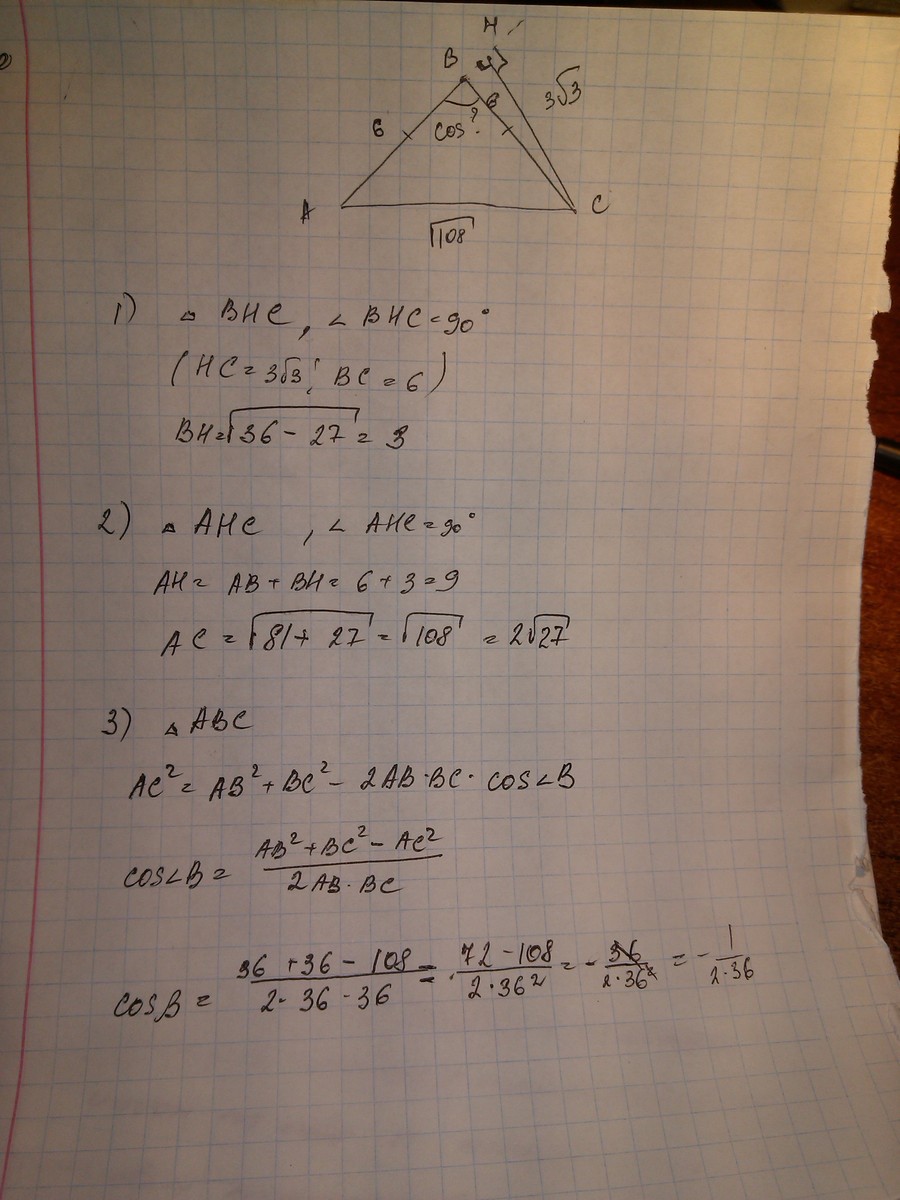 H
B
3√3
6 6
cos?
A C
√108
1) △ BHC, ∠ BHC = 90°
(HC = 3√3; BC = 6)
BH = √36 - 27 = 3
2) △ AHC, ∠ AHC = 90°
AH = AB + BH = 6 + 3 = 9
AC = √81 + 27 = √108 = 2√27
3) △ ABC
AC² = AB² + BC² - 2AB · BC · cos∠B
cos∠B = (AB² + BC² - AC²) / (2AB · BC)
cosB = (36 + 36 - 108) / (2 · 36 · 36) = (72 - 108) / (2 · 36²) = - 36 / (2 · 36²) = - 1 / (2 · 36)